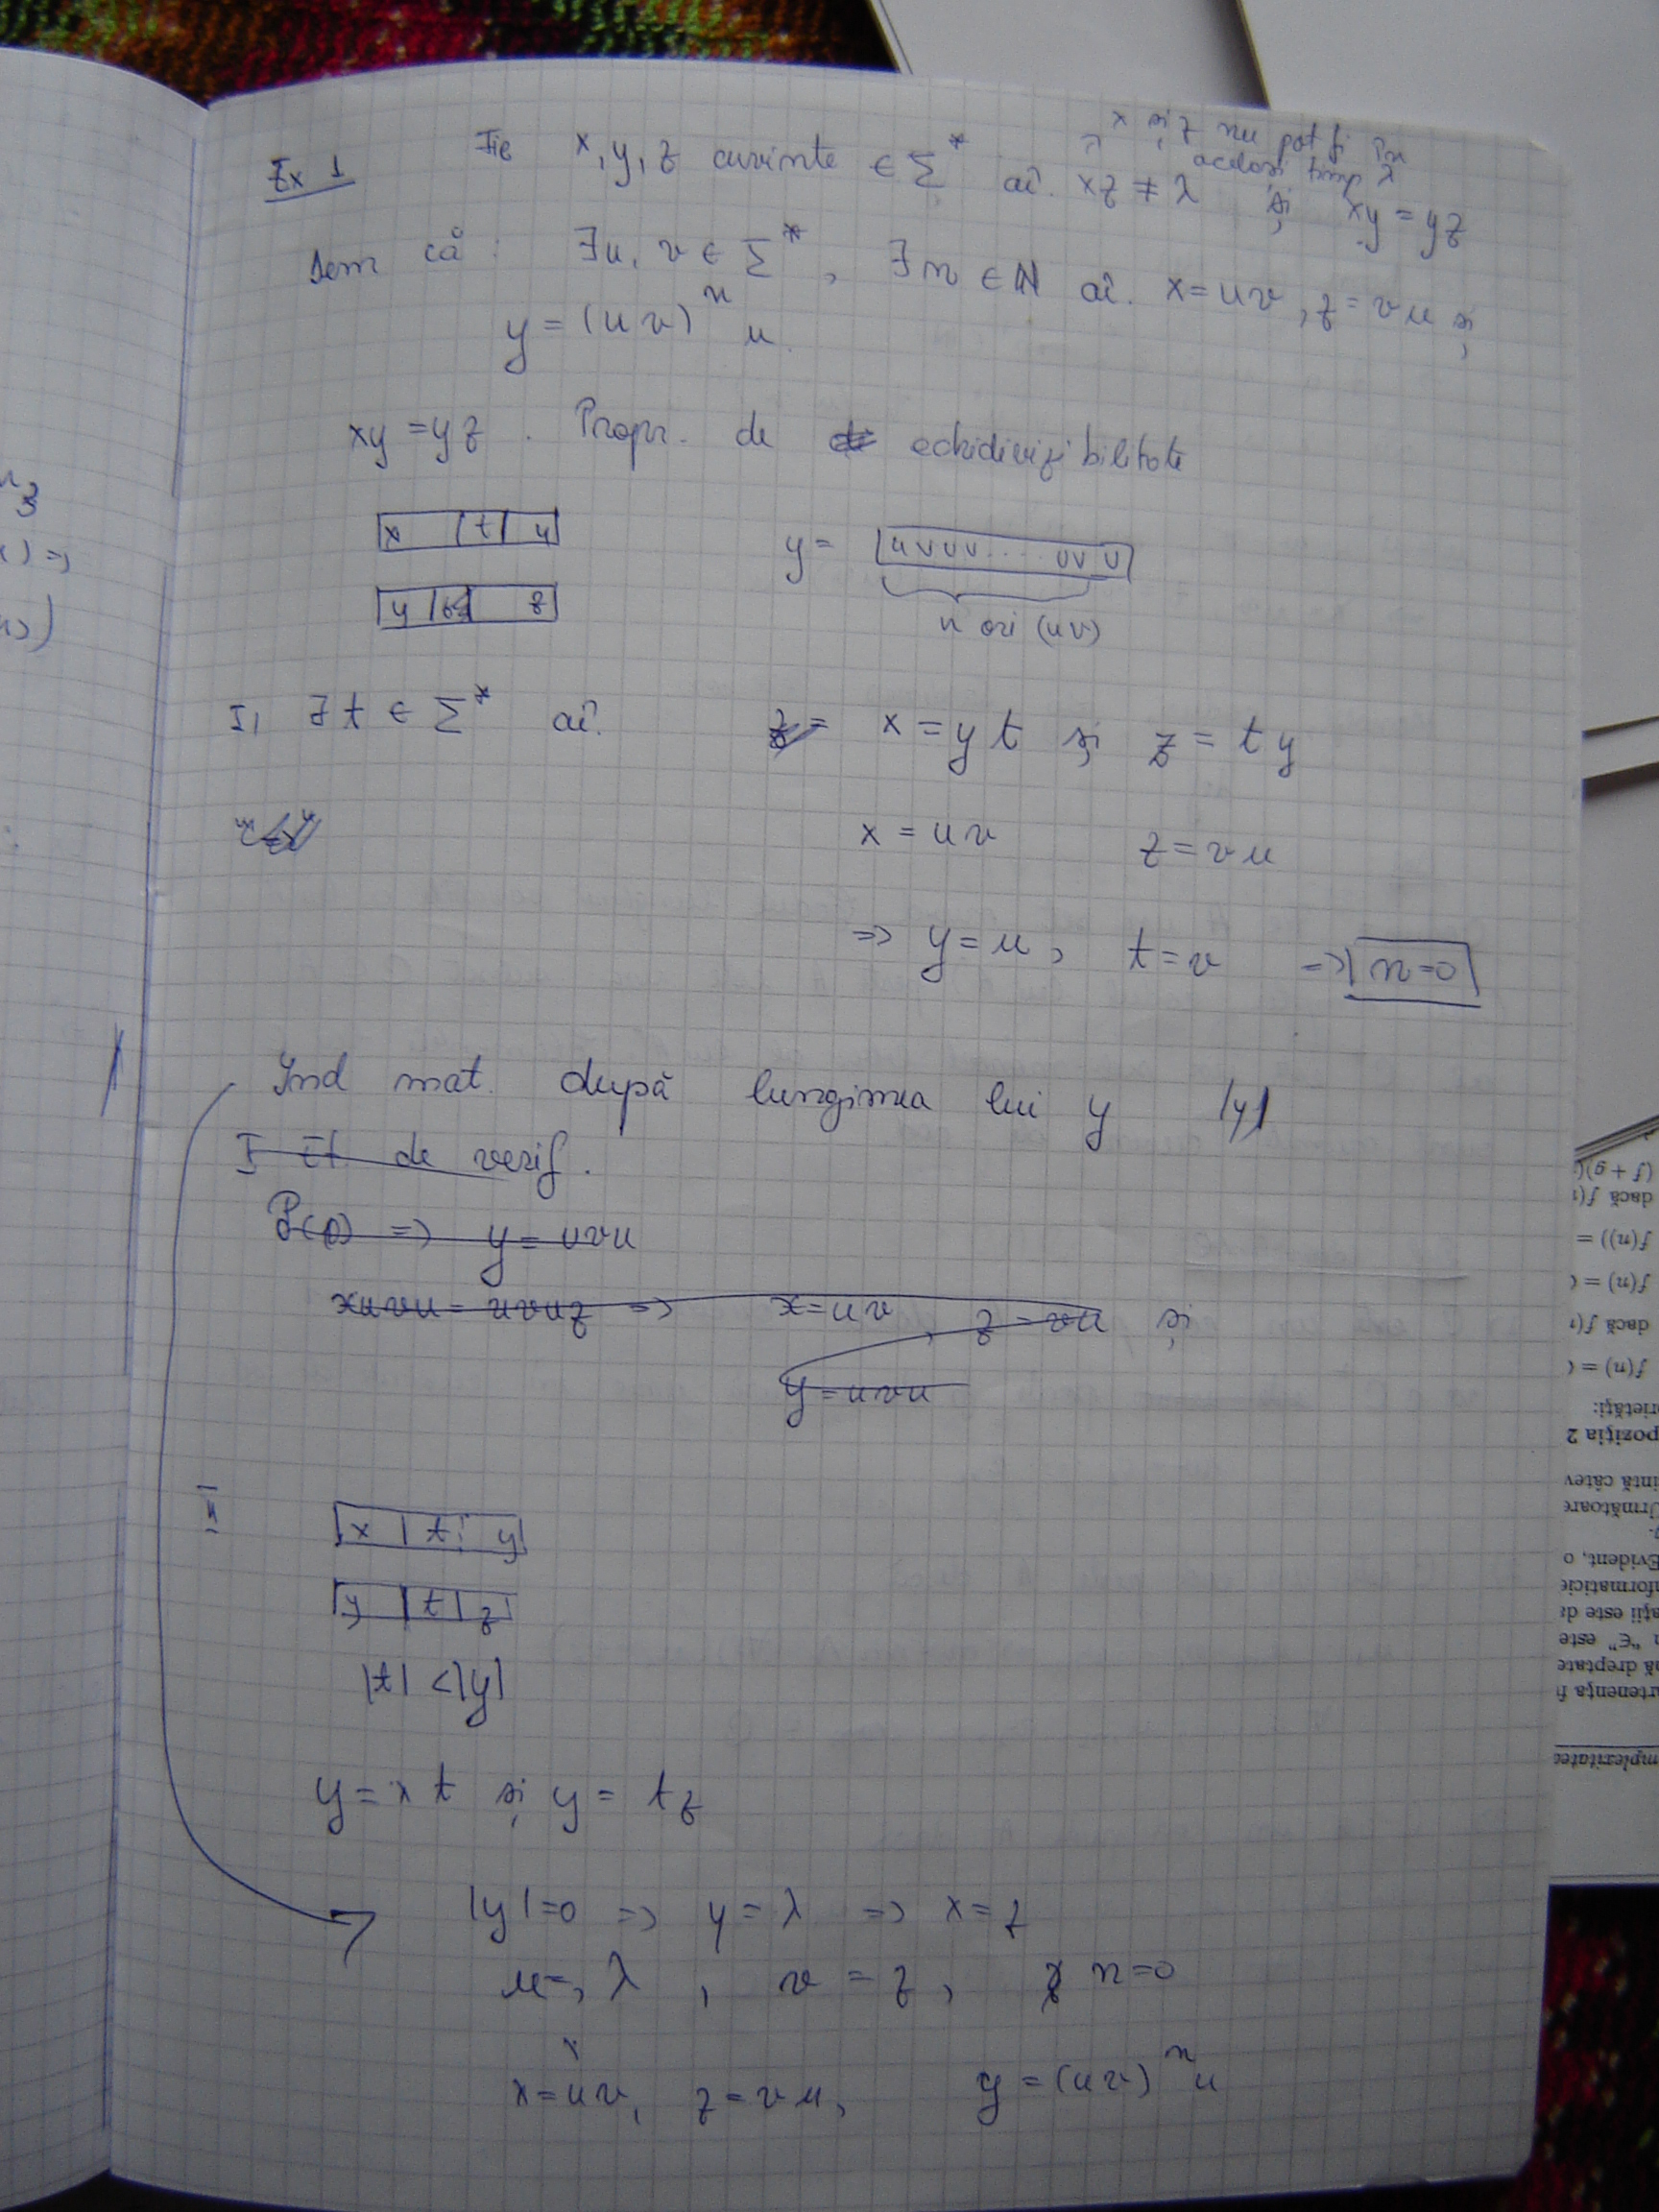 x și z nu pot fi în
același timp λ
Ex 1 Fie x, y, z cuvinte ∈ Σ* aî. xz ≠ λ și xy = yz
Dem că: ∃u, v ∈ Σ*, ∃n ∈ ℕ aî. x = uv, z = vu și
y = (uv)^n u.
xy = yz. Propr. de echidivizibilitate
x | t | y
y = uvuv....uvu
y | t | z
n ori (uv)
I, ∃t ∈ Σ* aî. x = yt și z = ty
x = uv z = vu
=> y = u, t = v => n=0
Ind mat. după lungimea lui y |y|
I Et de verif.
P(0) => y = uvu
xuvu = uvuz => x = uv, z = vu și
y = uvu
II x | t | y
y | t | z
|t| < |y|
y = xt și y = tz
|y| = 0 => y = λ => x = z
u = λ, v = z, n=0
x = uv, z = vu, y = (uv)^n u
(f + g)(
dacă f(
f(n)) =
f(n) = (
dacă f(
f(n) = (
rietăți:
poziția 2
intă câtev
Următoare
Evident, o
nformaticie
ații este d
"∈" este
nă dreptate
artenența f
mplexitatea